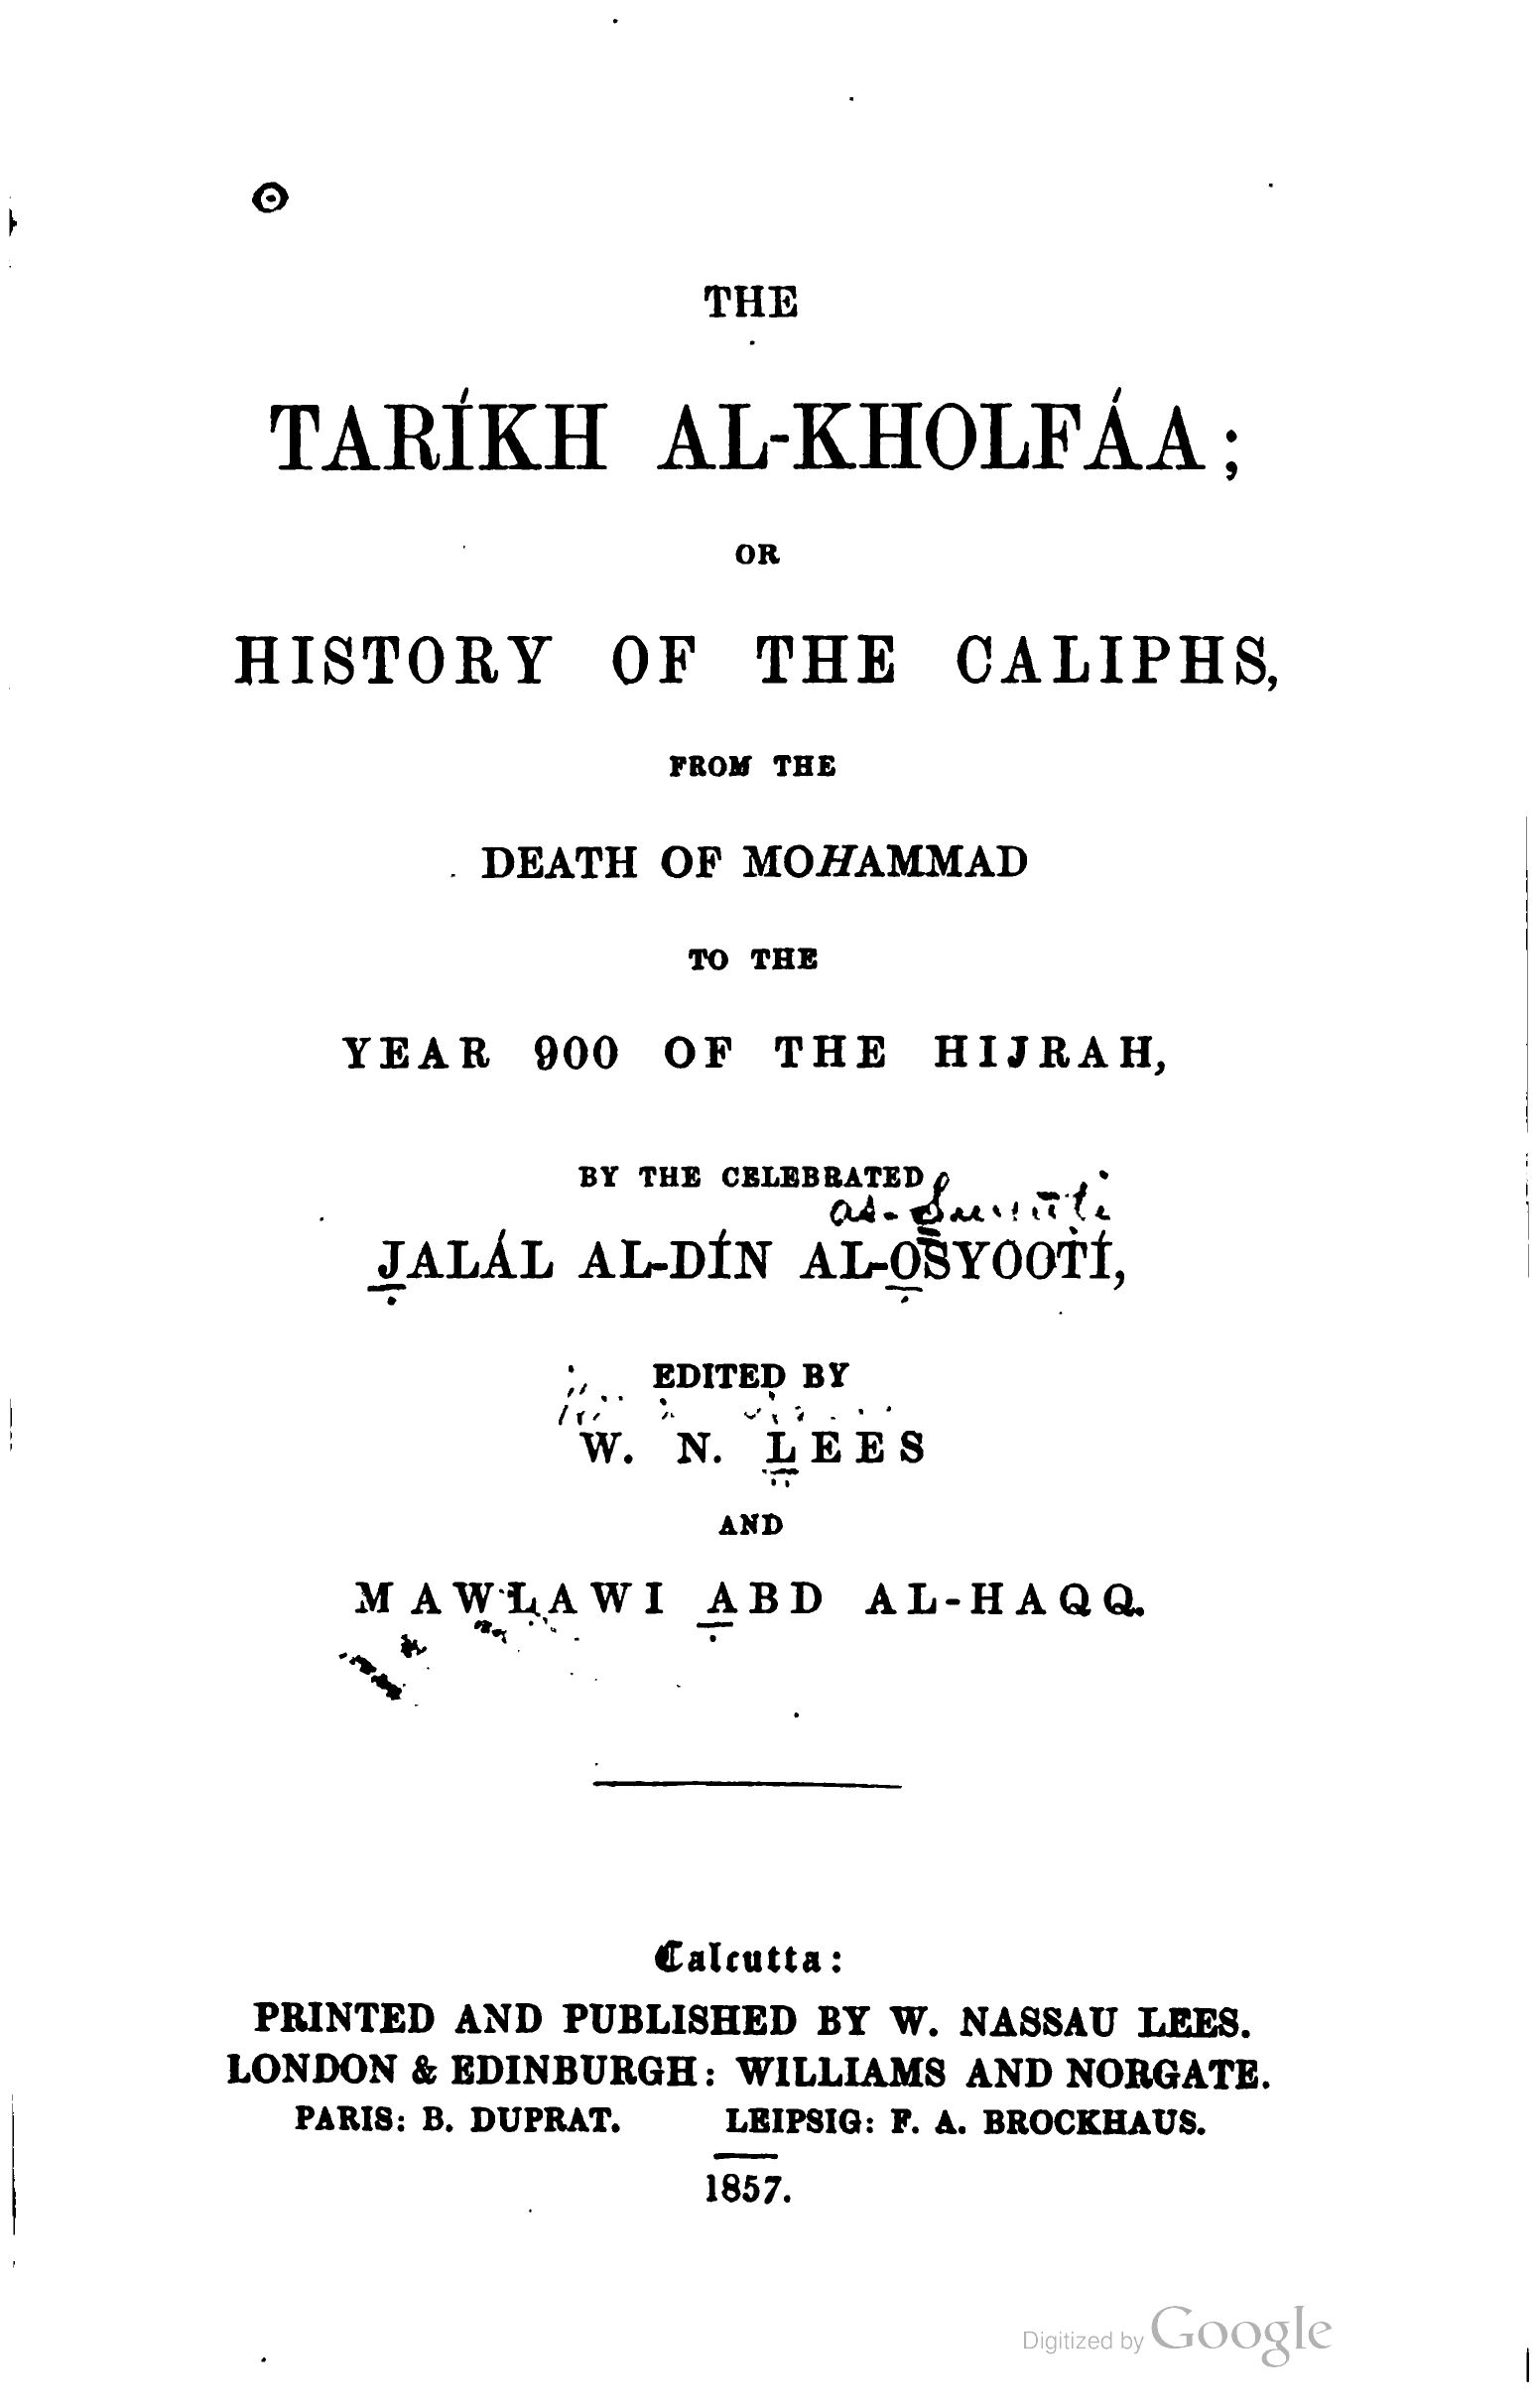 THE
TARÍKH AL-KHOLFÁA;
OR
HISTORY OF THE CALIPHS,
FROM THE
DEATH OF MOHAMMAD
TO THE
YEAR 900 OF THE HIJRAH,
BY THE CELEBRATED
as-
JALÁL AL-DÍN AL-OSYOOTÍ,
EDITED BY
W. N. LEES
AND
MAWLAWI ABD AL-HAQQ.
Calcutta:
PRINTED AND PUBLISHED BY W. NASSAU LEES.
LONDON & EDINBURGH: WILLIAMS AND NORGATE.
PARIS: B. DUPRAT. LEIPSIG: F. A. BROCKHAUS.
1857.
Digitized by Google